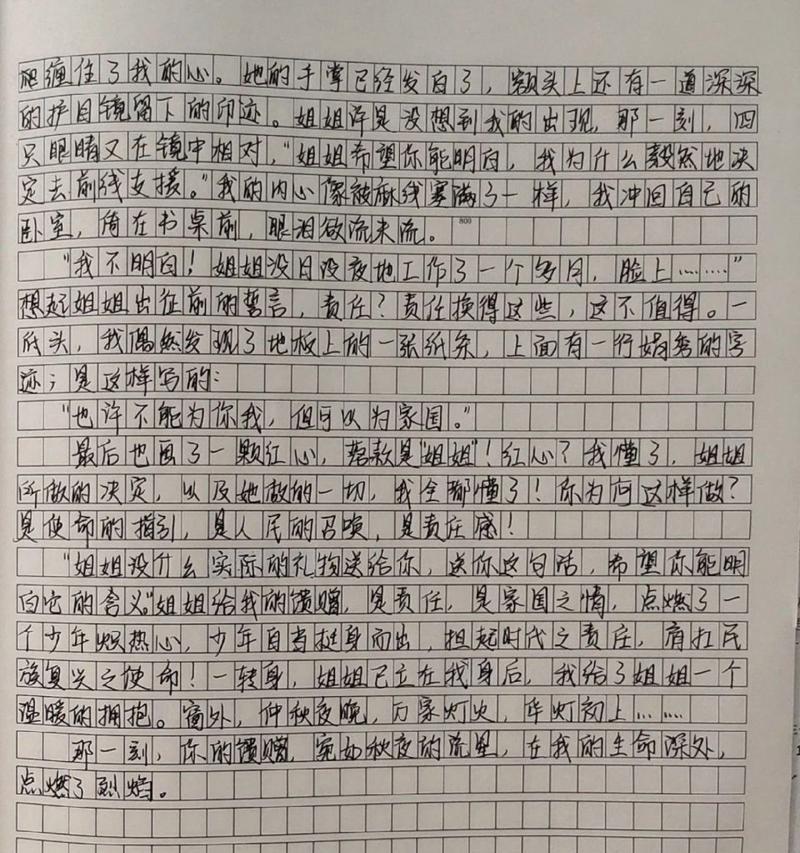 爬缠住了我的心。她的手掌已经发白了，额头上还有一道深深
的护目镜留下的印迹。姐姐许是没想到我的出现，那一刻，四
只眼睛又在镜中相对，“姐姐希望你能明白，我为什么毅然地决
定去前线支援。”我的内心像被麻线塞满了一样，我冲回自己的
卧室，倚在书桌前，眼泪欲流未流。
800
“我不明白！姐姐没日没夜地工作了一个多月，脸上………”
想起姐姐出征前的誓言，责任？责任换得这些，这不值得。一
低头，我偶然发现了地板上的一张纸条，上面有一行娟秀的字
迹；是这样写的：
“也许不能为你我，但可以为家国。”
最后也画了一颗红心，落款是“姐姐”！红心？我懂了，姐姐
所做的决定，以及她做的一切，我全都懂了！你为何这样做？
是使命的指引，是人民的召唤，是责任感！
“姐姐没什么实际的礼物送给你，送你这句话，希望你能明
白它的含义”姐姐给我的馈赠，是责任，是家国之情，点燃了一
个少年炽热心，少年自当挺身而出，担起时代之责任，肩扛民
族复兴之使命！一转身，姐姐已立在我身后，我给了姐姐一个
温暖的拥抱。窗外，仲秋夜晚，万家灯火，华灯初上……
那一刻，你的馈赠，宛如秋夜的流星，在我的生命深处，
点燃了烈焰。